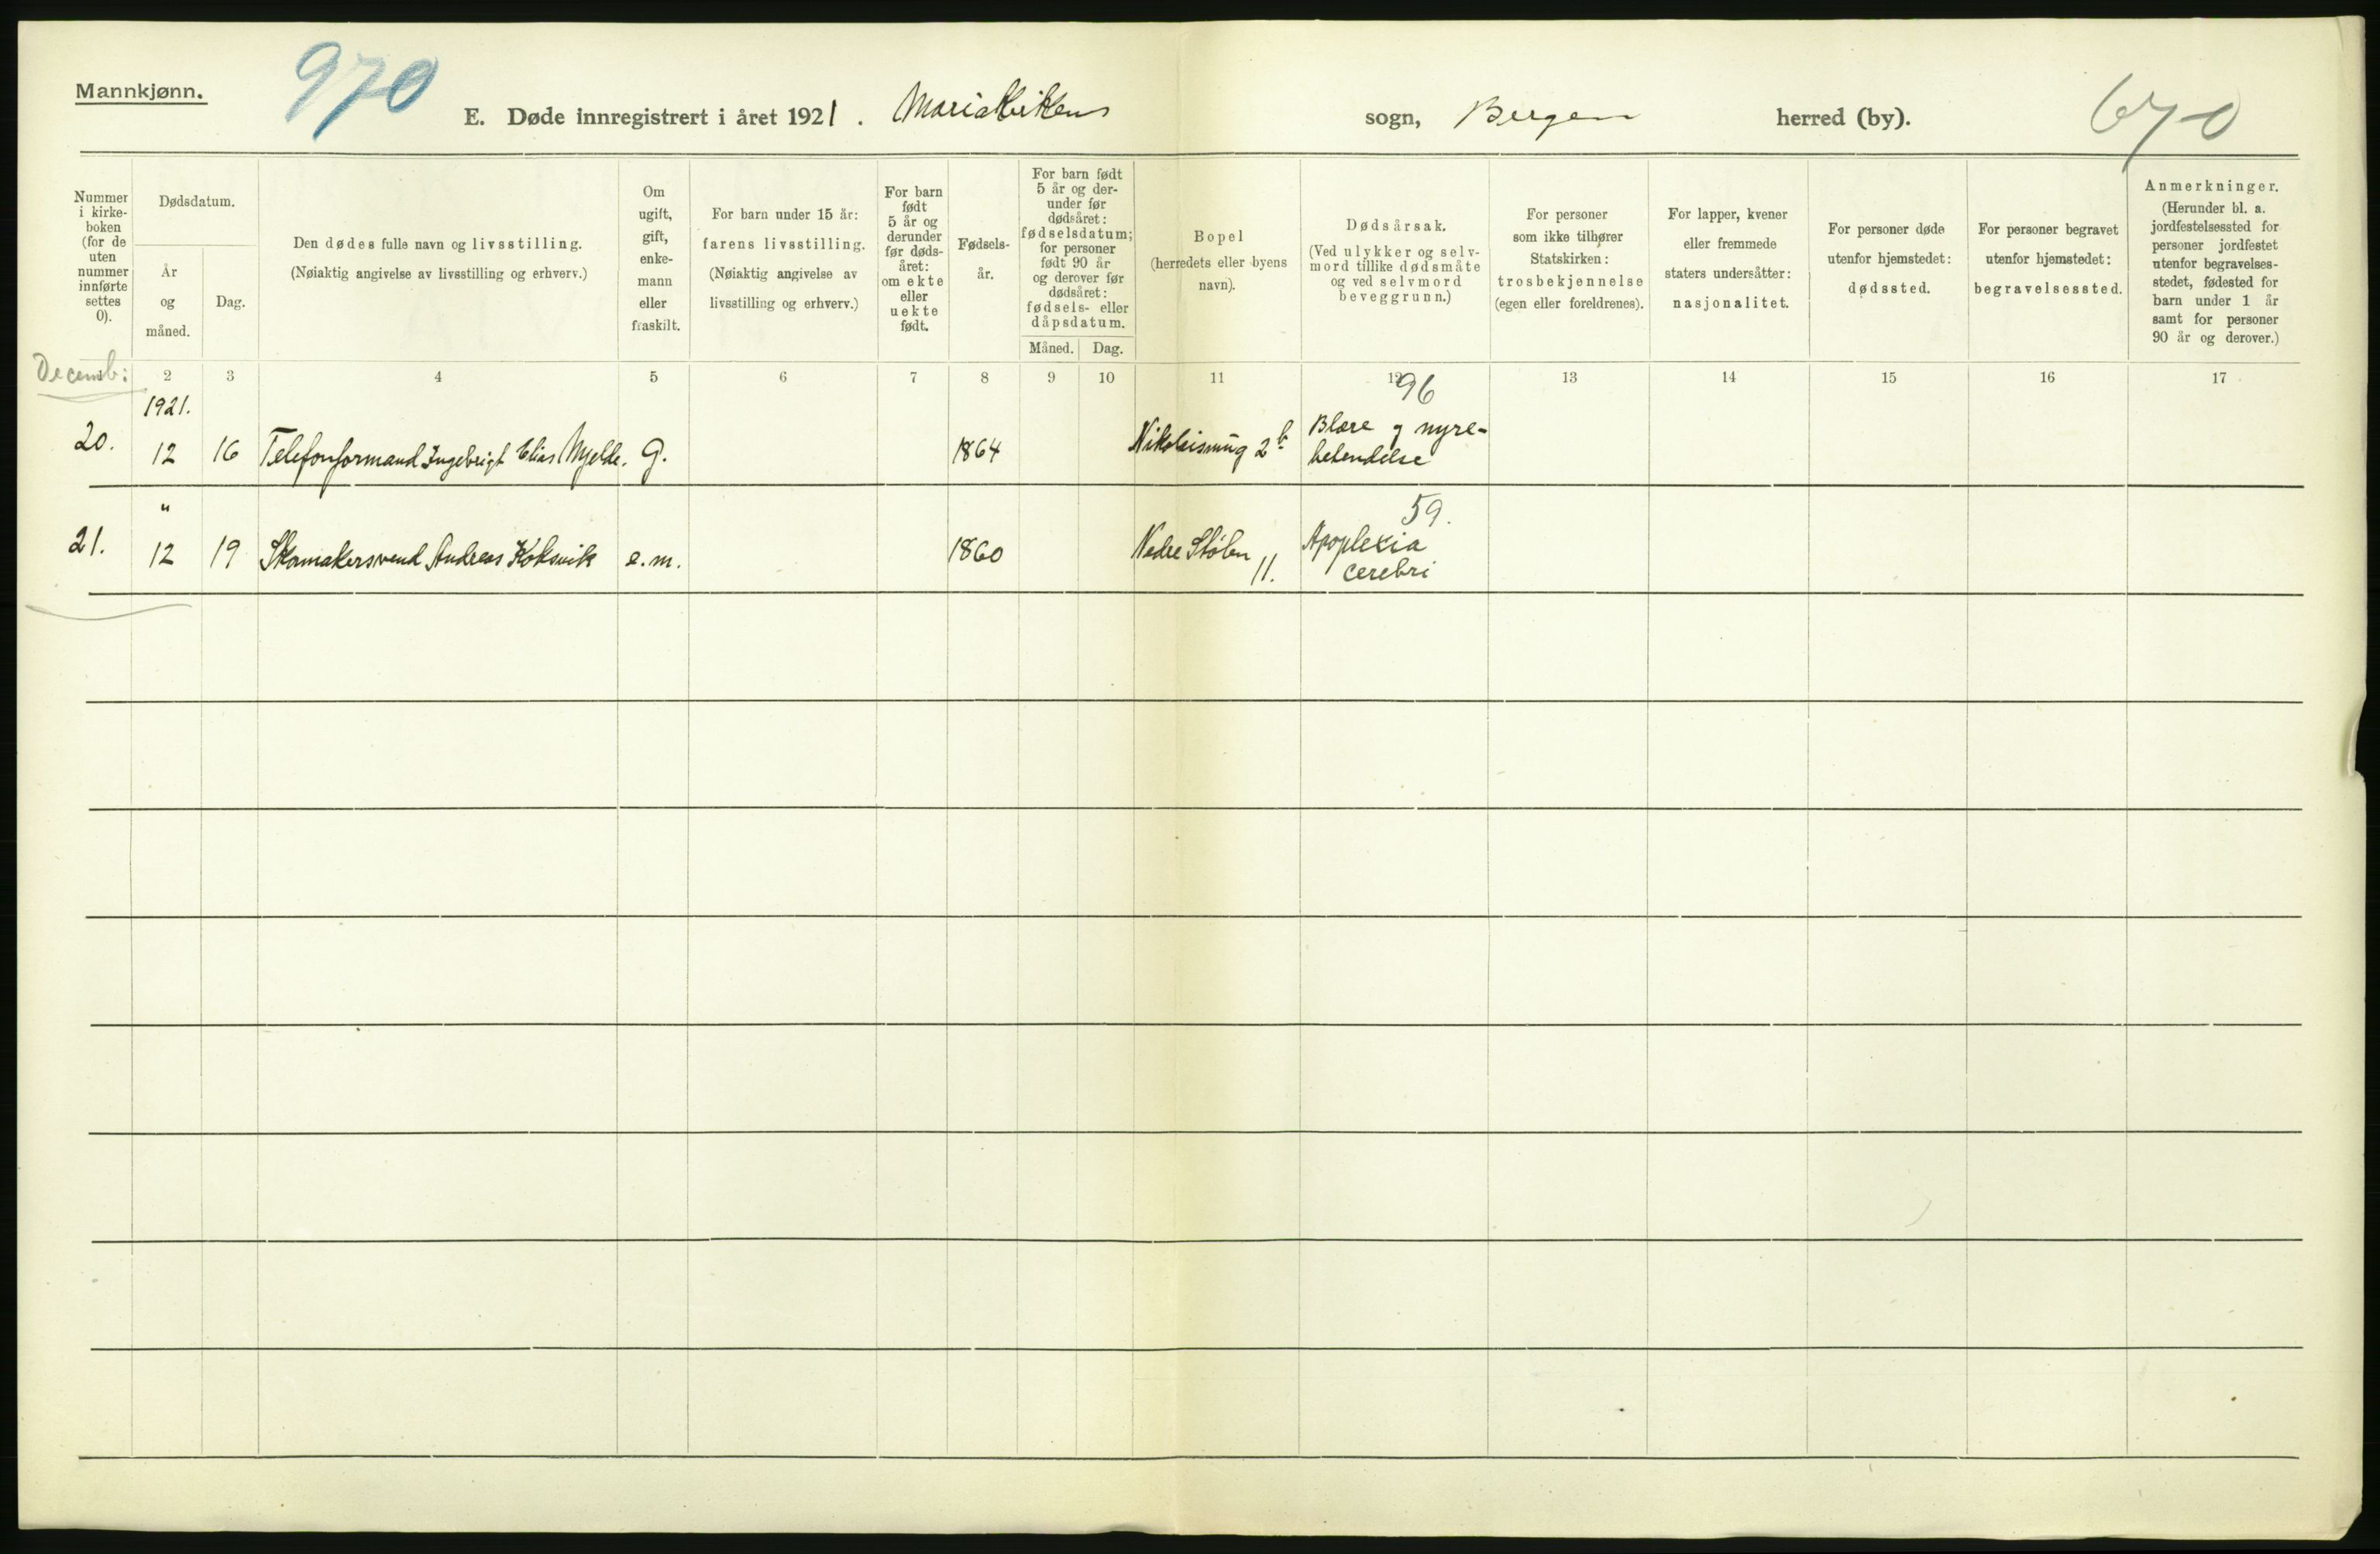 Mannkjønn.
970
E. Døde innregistrert i året 1921. Mariakirkens sogn, Bergen herred (by).
670
Nummer i kirke-boken (for de uten nummer innførte settes 0).
Dødsdatum.
År og måned.
Dag.
Den dødes fulle navn og livsstilling.
(Nøiaktig angivelse av livsstilling og erhverv.)
Om ugift, gift, enke-mann eller fraskilt.
For barn under 15 år:
farens livsstilling.
(Nøiaktig angivelse av
livsstilling og erhverv.)
For barn født 5 år og derunder før døds-året: om ekte eller uekte født.
Fødsels-år.
For barn født 5 år og der-under før dødsåret: fødselsdatum; for personer født 90 år og derover før dødsåret: fødsels- eller dåpsdatum.
Måned. Dag.
Bopel
(herredets eller byens
navn).
Dødsårsak.
(Ved ulykker og selv-
mord tillike dødsmåte
og ved selvmord
beveggrunn.)
For personer
som ikke tilhører
Statskirken:
trosbekjennelse
(egen eller foreldrenes).
For lapper, kvener
eller fremmede
staters undersåtter:
nasjonalitet.
For personer døde
utenfor hjemstedet:
dødssted.
For personer begravet
utenfor hjemstedet:
begravelsessted.
Anmerkninger.
(Herunder bl. a.
jordfestelsessted for
personer jordfestet
utenfor begravelses-
stedet, fødested for
barn under 1 år
samt for personer
90 år og derover.)
Decemb:
2 3 4 5 6 7 8 9 10 11 12 13 14 15 16 17
1921.
96
20. 12 16 Telefonformand Ingebrigt Elias Mjelde. G. 1864 2b Blære og nyre-
betendelse
"
59.
21. 12 19 Skomakersvend Andreas Koksvik e.m. 1860 Nedre Stølen 11. Apoplexia
cerebri